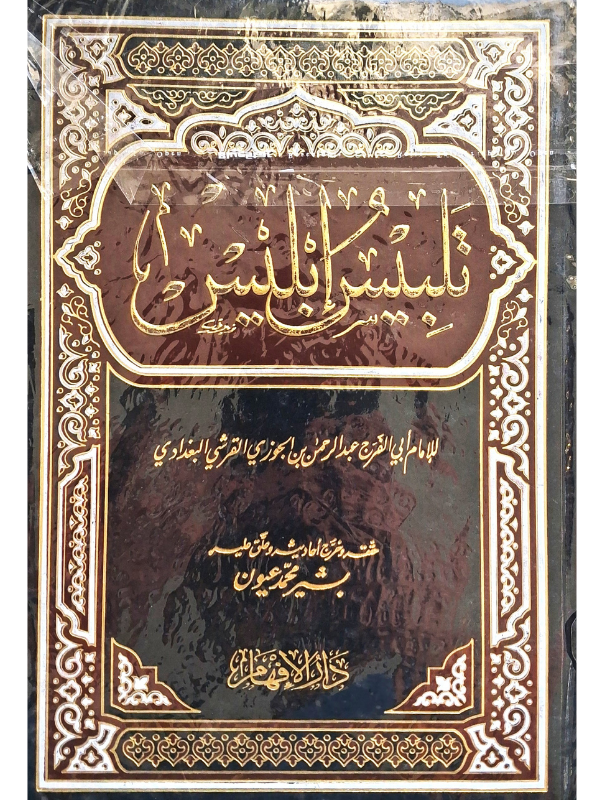 تَلبِيسُ إبْلِيسْ
للإمام أبي الفرج عبد الرحمٰن بن الجوزي القرشي البغدادي
حققه وخرّج أحاديثه وعلّق عليه
بشير محمّد عيون
دَارُ الإفْهَام